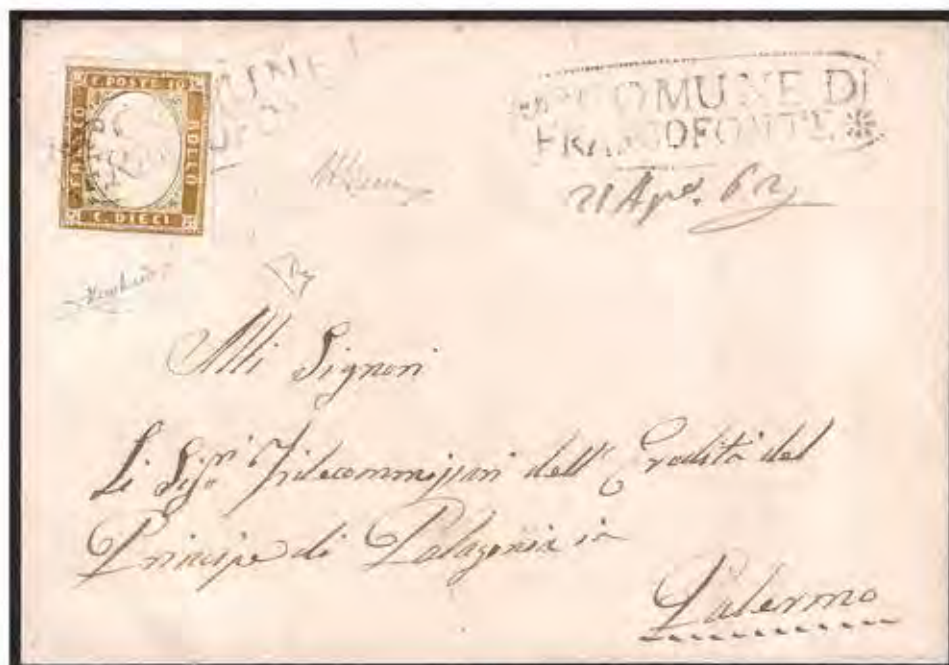 C. POSTE 10
FRANCO
BOLLO
C. DIECI
COMUNE DI
FRANCOFONTE
21 Apr. 62
Alli Signori
Li Sigri Fidecommissari dell'Eredità del
Principe di Palagonia in
Palermo